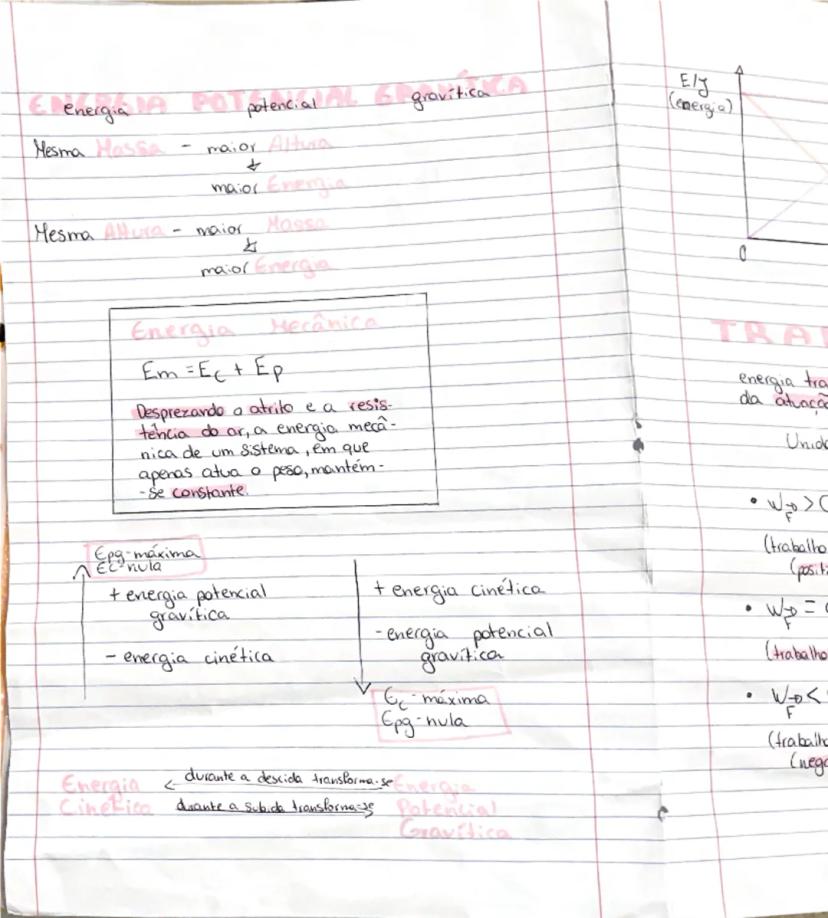 ENERGIA POTENCIAL GRAVÍTICA
energia potencial gravítica
Mesma Massa - maior Altura
maior Energia
Mesma Altura - maior Massa
maior Energia
Energia Mecânica
Em = Ec + Ep
Desprezando o atrito e a resis-
tência do ar, a energia mecâ-
nica de um sistema, em que
apenas atua o peso, mantém-
-se constante.
Epg-máxima
Ec-nula
+ energia potencial
gravítica
- energia cinética
+ energia cinética
- energia potencial
gravítica
Ec-máxima
Epg-nula
Energia durante a descida transforma-se Energia
Cinética durante a subida transforma-se Potencial
Gravítica
E/J
(energia)
0
TRA
energia tra
da atuaçã
Unid
• W F > 0
(trabalho
(posit
• W F =
(trabalho
• W F <
(trabalh
(nega